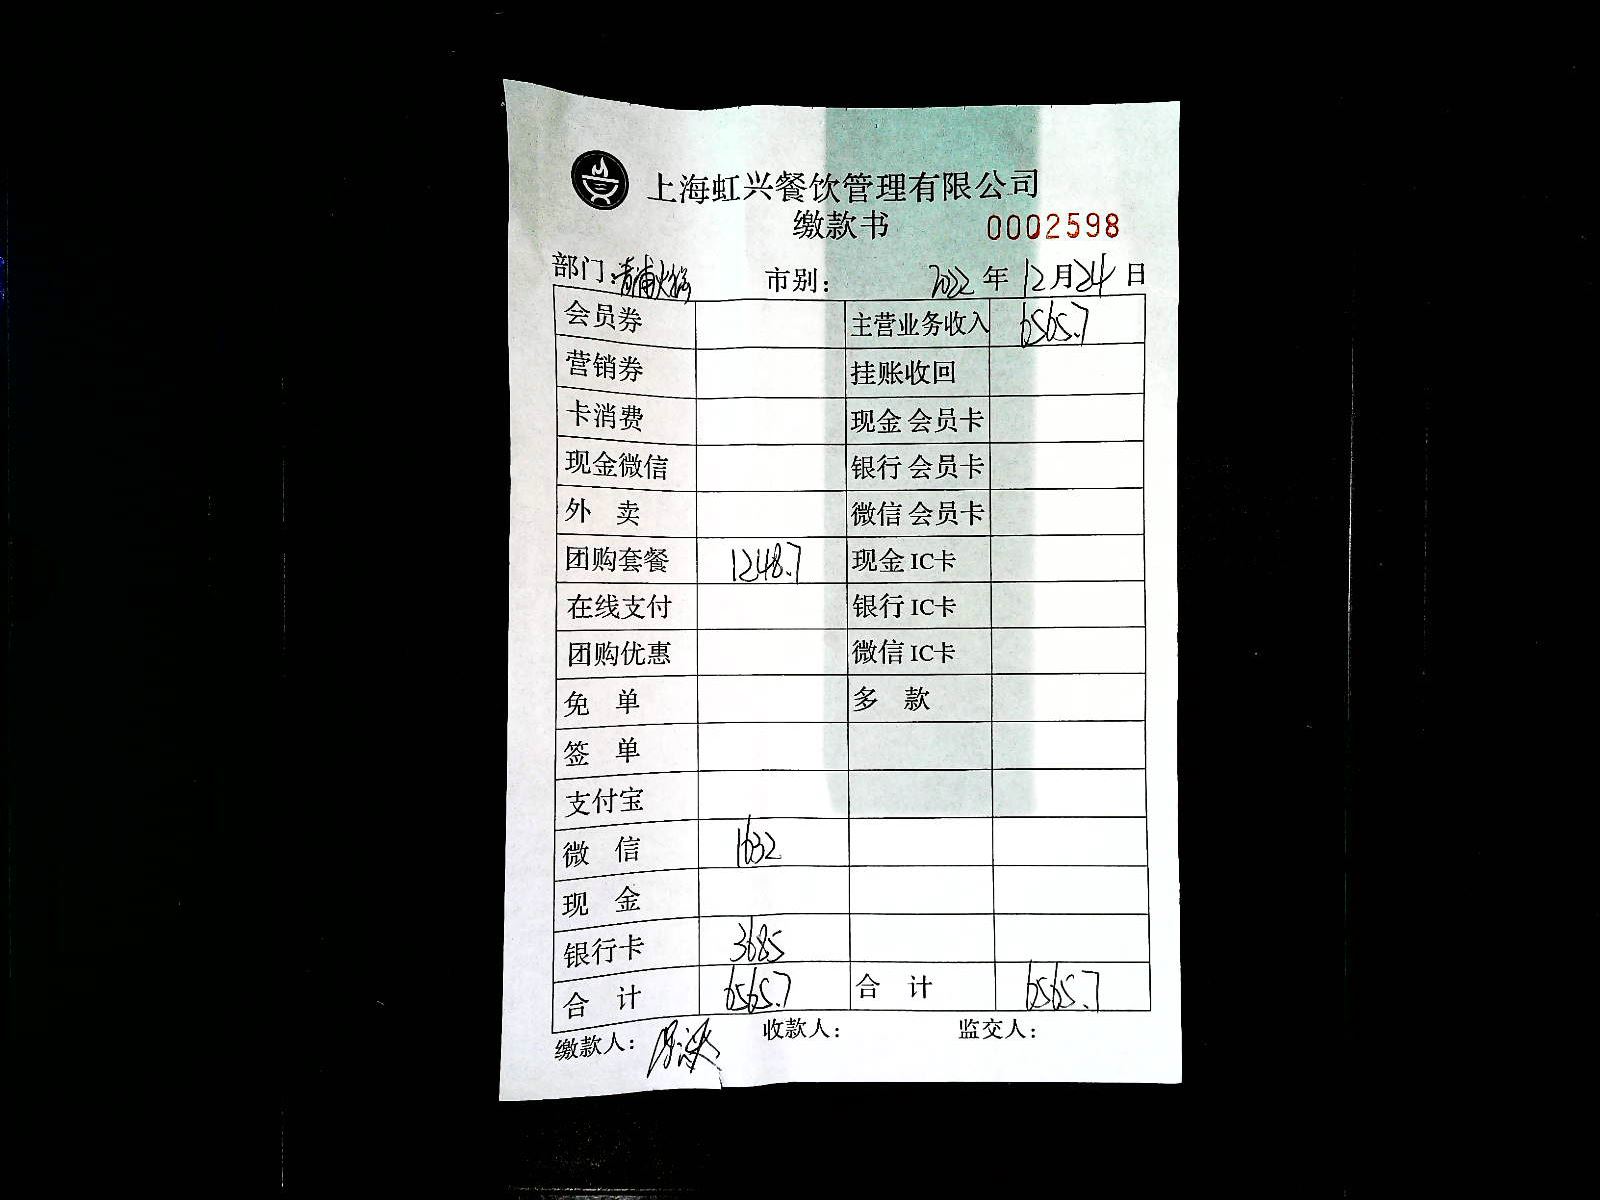 上海虹兴餐饮管理有限公司
缴款书 0002598
部门: 青浦火锅 市别: 2022 年 12 月 24 日
会员券 主营业务收入 6565.7
营销券 挂账收回
卡消费 现金 会员卡
现金微信 银行 会员卡
外 卖 微信 会员卡
团购套餐 1248.7 现金 IC卡
在线支付 银行 IC卡
团购优惠 微信 IC卡
免 单 多 款
签 单
支付宝
微 信 1632
现 金
银行卡 3685
合 计 6565.7 合 计 6565.7
缴款人: 收款人: 监交人: